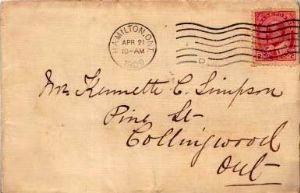 HAMILTON, ONT.
APR 21
10-AM
Mr. Kennette C. Simpson
Pine St
Collingwood
Ont